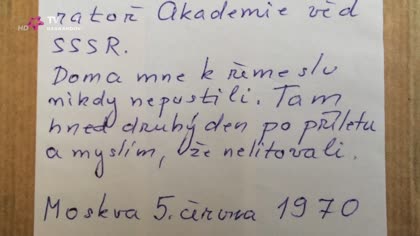 HD TV
rátoř Akademie věd
SSSR.
Doma mne k řemeslu
nikdy nepustili. Tam
hned druhý den po příletu
a myslím, že nelitovali.
Moskva 5. června 1970